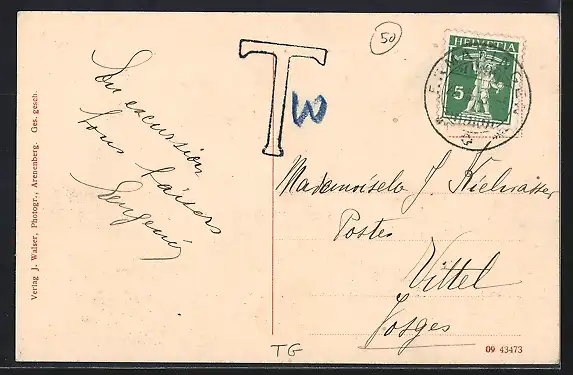 50
HELVETIA
5
T
W
En excursion
bons baisers
Eugénie
Mademoiselle J. Kielwasser
Postes
Vittel
Vosges
Verlag J. Walser, Photogr., Arenenberg. Ges. gesch.
TG
09 43473